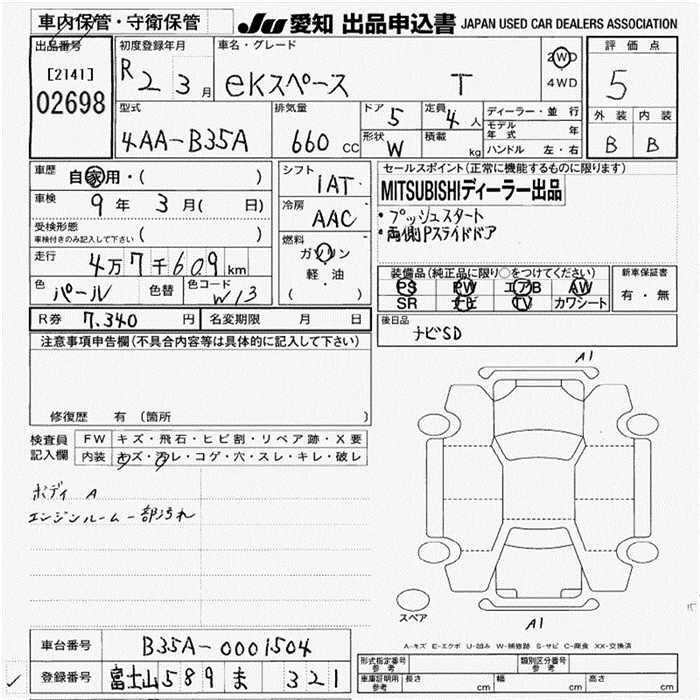 車内保管・守衛保管
JU 愛知 出品申込書 JAPAN USED CAR DEALERS ASSOCIATION
出品番号
[2141]
02698
初度登録年月
R 2 3月
車名・グレード
eKスペース T
2WD
4WD
評価点
5
外装 内装
B B
型式
4AA-B35A
排気量
660 cc
ドア 5
定員 4人
形状 W
積載 kg
ディーラー・並行
モデル年式 年
ハンドル 左・右
車歴 自家用・( )
車検 9年 3月( 日)
受検形態
車検付きのみ記入して下さい ( )
走行 4万7千609km
色 パール 色替 色コード W13
シフト
IAT
冷房
AAC
燃料
ガソリン
軽・油
( )
セールスポイント(正常に機能するものに限ります)
MITSUBISHIディーラー出品
・プッシュスタート
・両側Pスライドドア
装備品(純正品に限り○をつけてください)
PS PW エアB AW
SR ナビ TV カワシート
新車保証書
有・無
R券 7,340 円 名変期限 月 日
後日品
ナビSD
注意事項申告欄(不具合内容等は具体的に記入して下さい)
修復歴 有 (箇所 )
検査員記入欄
FW キズ・飛石・ヒビ割・リペア跡・X要
内装 キズ・汚レ・コゲ・穴・スレ・キレ・破レ
ボディ A
エンジンルーム一部汚れ
A1
A1
スペア
A-キズ E-エクボ U-凹み W-補修跡 S-サビ C-腐食 XX-交換済
車台番号 B35A-0001504
登録番号 富士山 589 ま 321
形式指定番号 参考
類別区分番号 参考
車庫証明用 参考 長さ cm 幅 cm 高さ cm